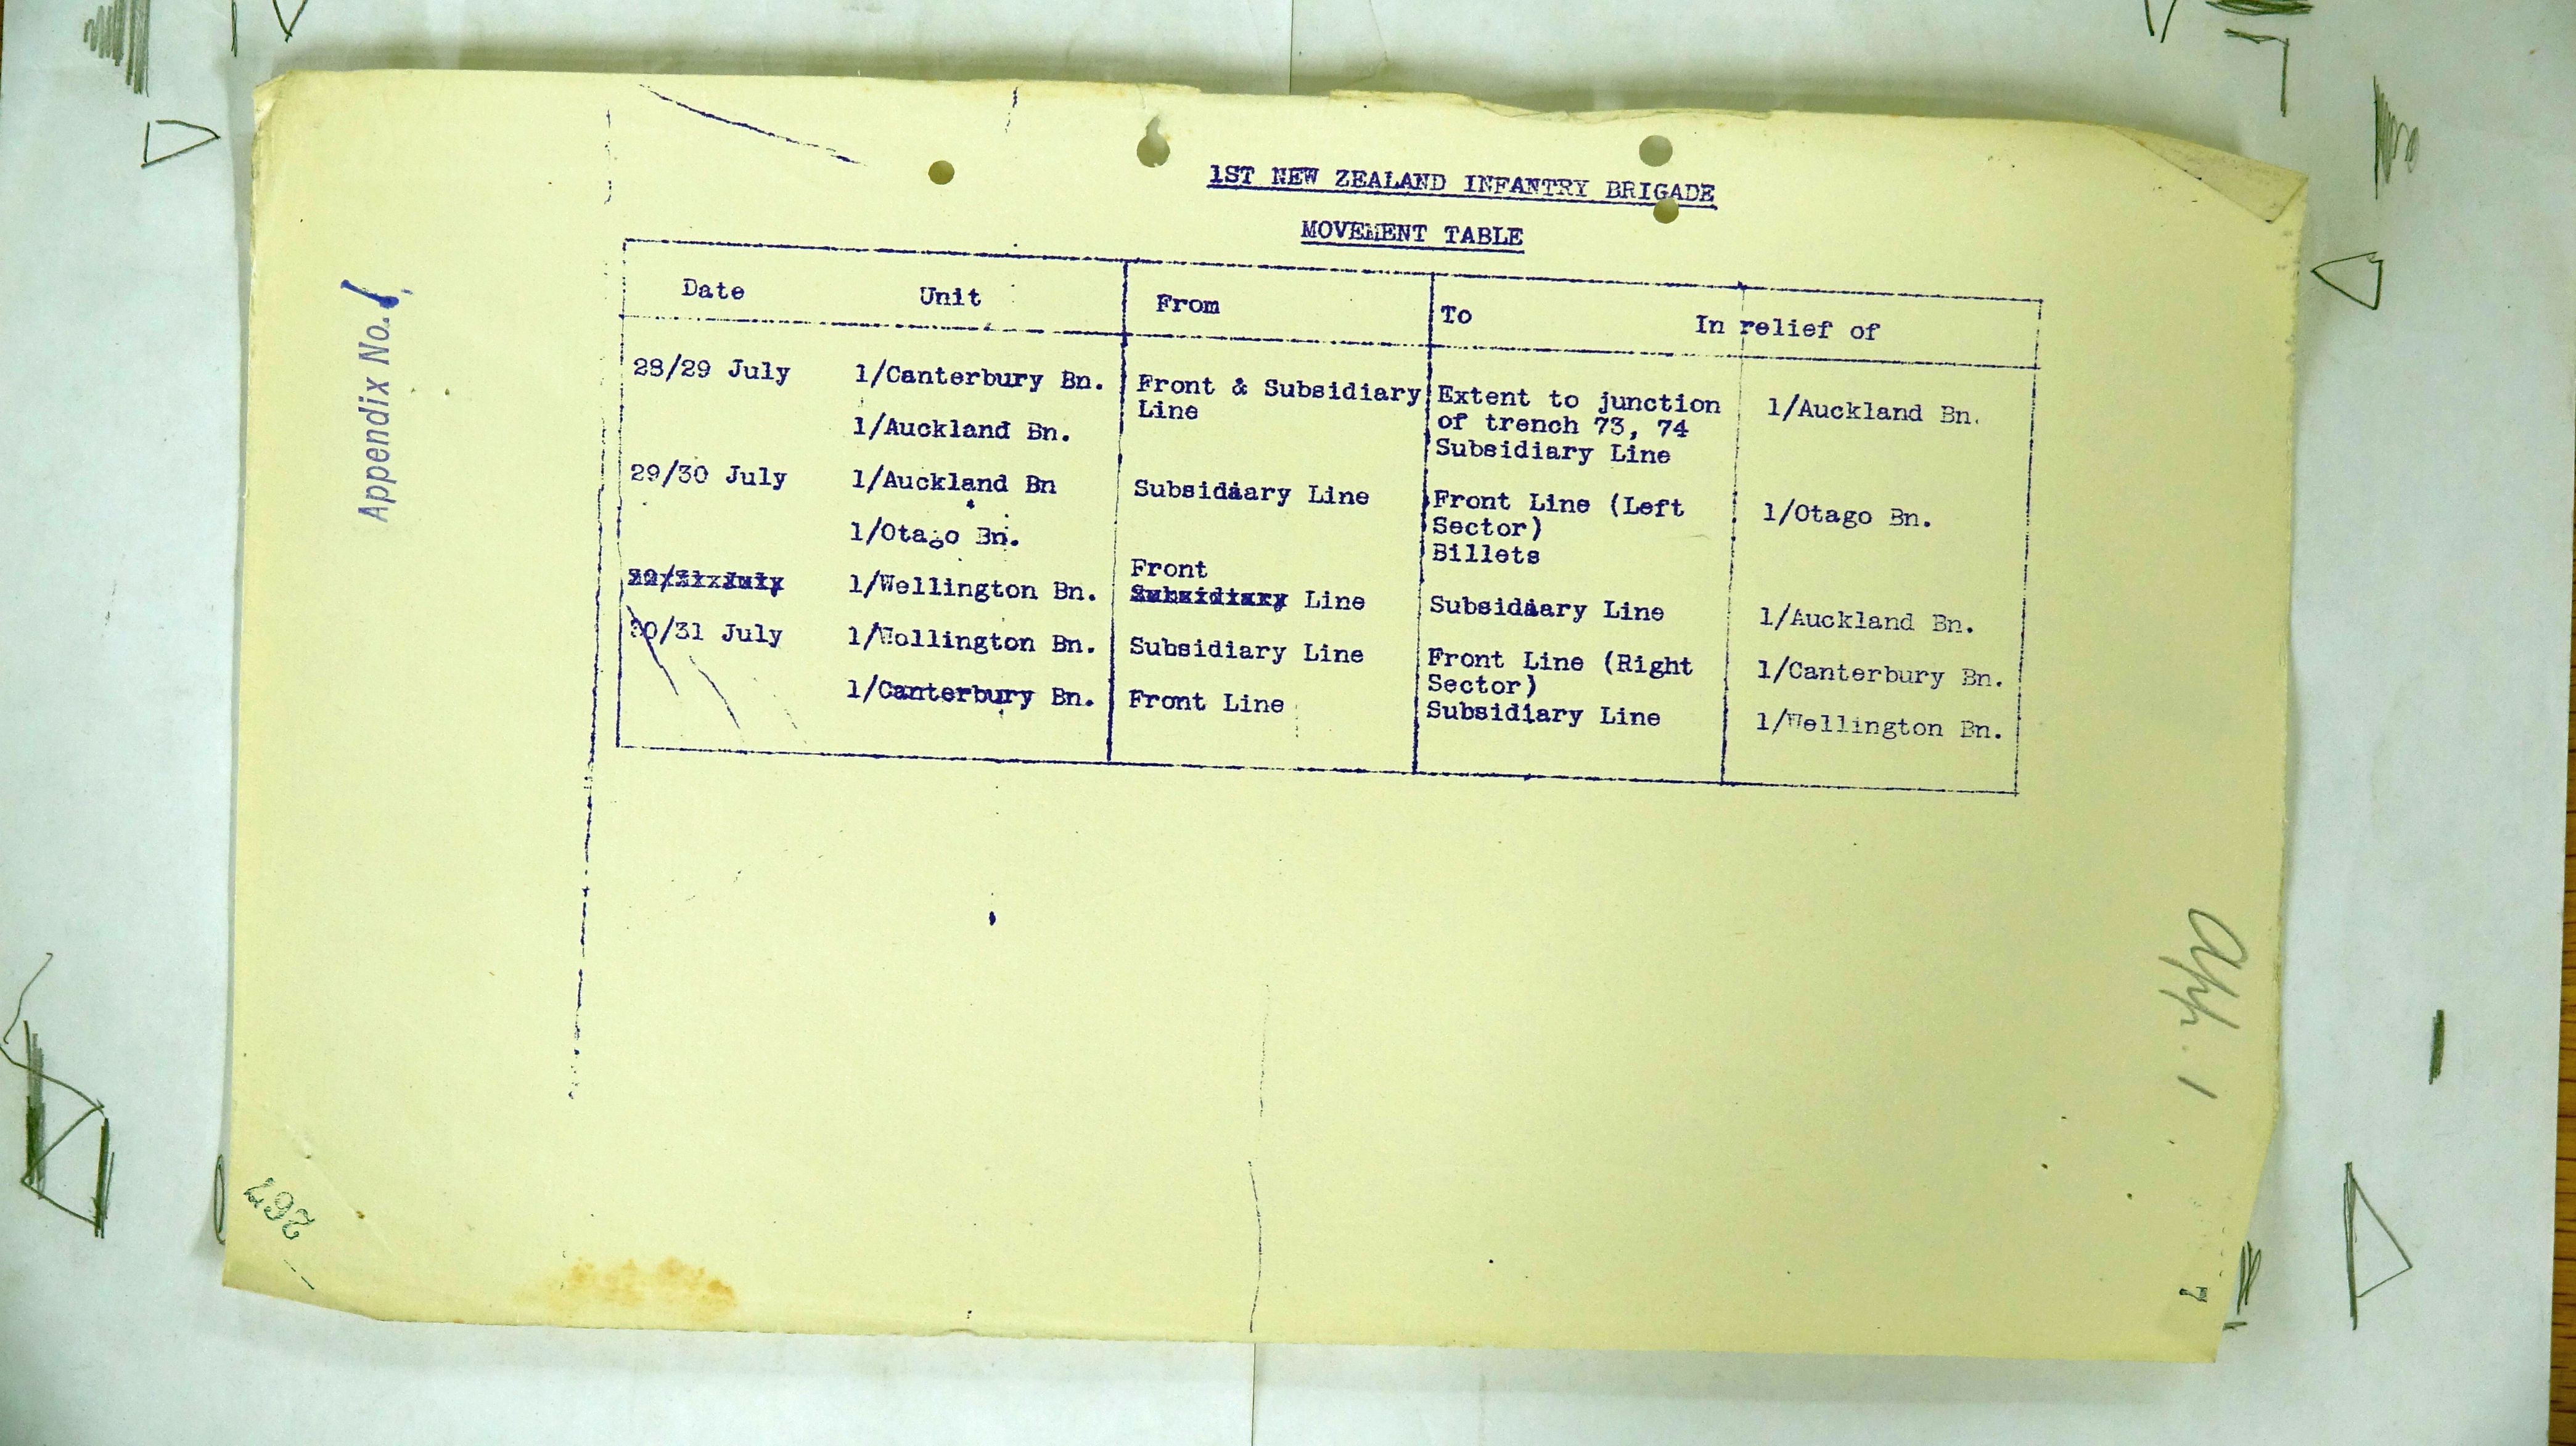 1ST NEW ZEALAND INFANTRY BRIGADE
MOVEMENT TABLE
Date Unit From To In relief of
28/29 July 1/Canterbury Bn. Front & Subsidiary Extent to junction 1/Auckland Bn.
Line of trench 73, 74
1/Auckland Bn. Subsidiary Line
29/30 July 1/Auckland Bn Subsidiary Line Front Line (Left 1/Otago Bn.
Sector)
1/Otago Bn. Billets
Front
1/Wellington Bn. Subsidiary Line Subsidiary Line 1/Auckland Bn.
30/31 July 1/Wollington Bn. Subsidiary Line Front Line (Right 1/Canterbury Bn.
Sector)
1/Canterbury Bn. Front Line Subsidiary Line 1/Wellington Bn.
Appendix No. 1
App. 1
267
7